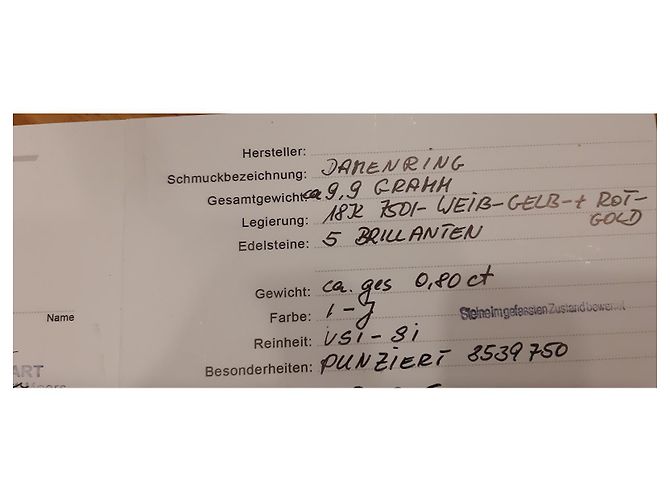 Hersteller:
Schmuckbezeichnung: DAMENRING
Gesamtgewicht: ca 9,9 GRAMM
Legierung: 18K 750/- WEIß-GELB-+ ROT-
GOLD
Edelsteine: 5 BRILLANTEN
Gewicht: ca. ges 0,80 ct
Farbe: I - J
Steine im gefassten Zustand bewertet
Name
Reinheit: VSI - Si
ART
Besonderheiten: PUNZIERT 3539750